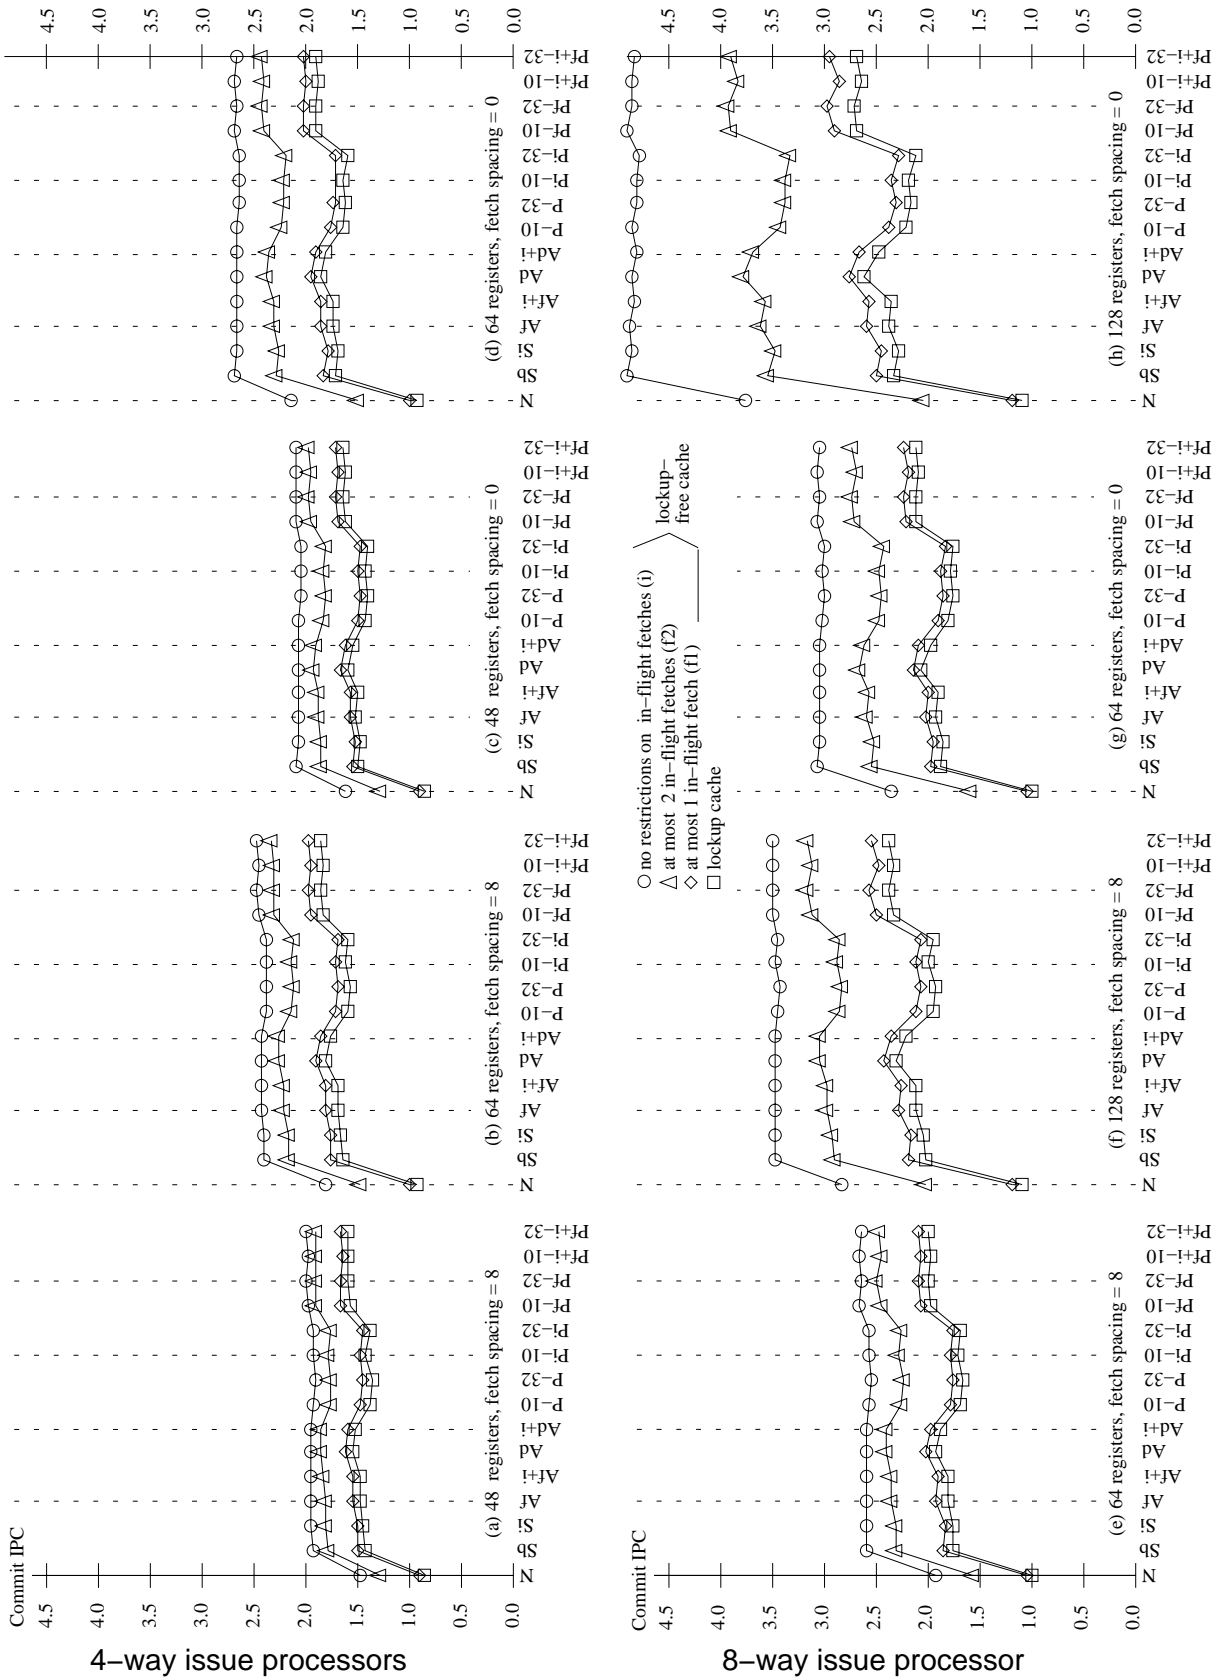 Commit IPC
4.5
4.0
3.5
3.0
2.5
2.0
1.5
1.0
0.5
0.0
N
Sb
Si
Af
Af+i
Ad
Ad+i
P−10
P−32
Pi−10
Pi−32
Pf−10
Pf−32
Pf+i−10
Pf+i−32
(a) 48 registers, fetch spacing = 8
N
Sb
Si
Af
Af+i
Ad
Ad+i
P−10
P−32
Pi−10
Pi−32
Pf−10
Pf−32
Pf+i−10
Pf+i−32
(b) 64 registers, fetch spacing = 8
N
Sb
Si
Af
Af+i
Ad
Ad+i
P−10
P−32
Pi−10
Pi−32
Pf−10
Pf−32
Pf+i−10
Pf+i−32
(c) 48 registers, fetch spacing = 0
N
Sb
Si
Af
Af+i
Ad
Ad+i
P−10
P−32
Pi−10
Pi−32
Pf−10
Pf−32
Pf+i−10
Pf+i−32
(d) 64 registers, fetch spacing = 0
4.5
4.0
3.5
3.0
2.5
2.0
1.5
1.0
0.5
0.0
4−way issue processors
Commit IPC
4.5
4.0
3.5
3.0
2.5
2.0
1.5
1.0
0.5
0.0
N
Sb
Si
Af
Af+i
Ad
Ad+i
P−10
P−32
Pi−10
Pi−32
Pf−10
Pf−32
Pf+i−10
Pf+i−32
(e) 64 registers, fetch spacing = 8
N
Sb
Si
Af
Af+i
Ad
Ad+i
P−10
P−32
Pi−10
Pi−32
Pf−10
Pf−32
Pf+i−10
Pf+i−32
(f) 128 registers, fetch spacing = 8
no restrictions on in-flight fetches (i)
at most 2 in-flight fetches (f2)
at most 1 in-flight fetch (f1)
lockup cache
lockup−
free cache
N
Sb
Si
Af
Af+i
Ad
Ad+i
P−10
P−32
Pi−10
Pi−32
Pf−10
Pf−32
Pf+i−10
Pf+i−32
(g) 64 registers, fetch spacing = 0
N
Sb
Si
Af
Af+i
Ad
Ad+i
P−10
P−32
Pi−10
Pi−32
Pf−10
Pf−32
Pf+i−10
Pf+i−32
(h) 128 registers, fetch spacing = 0
4.5
4.0
3.5
3.0
2.5
2.0
1.5
1.0
0.5
0.0
8−way issue processor